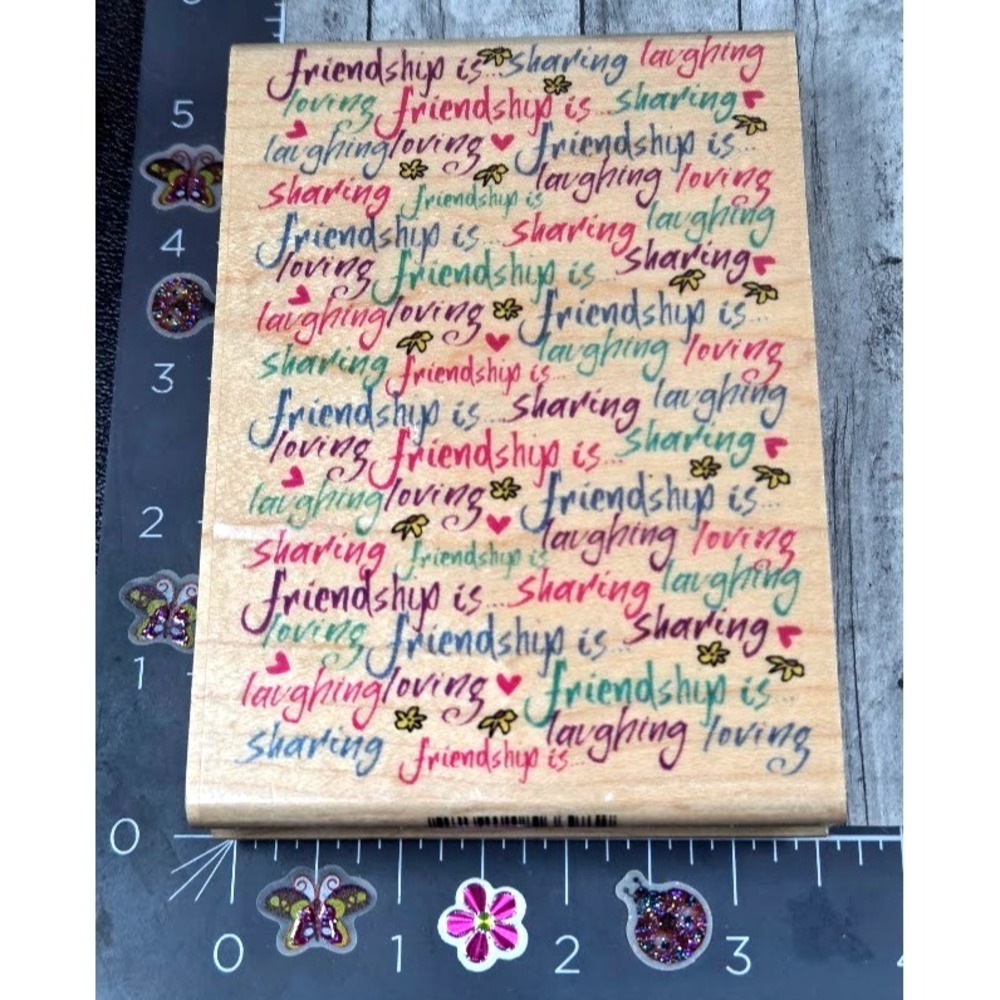 friendship is... sharing laughing
loving friendship is... sharing
laughing loving friendship is...
sharing friendship is laughing loving
friendship is... sharing laughing
loving friendship is... sharing
laughing loving friendship is...
sharing friendship is... laughing loving
friendship is... sharing laughing
loving friendship is... sharing
laughing loving friendship is...
sharing friendship is laughing loving
friendship is... sharing laughing
loving friendship is... sharing
laughing loving friendship is...
sharing friendship is... laughing loving
5
4
3
2
1
0
0 1 2 3